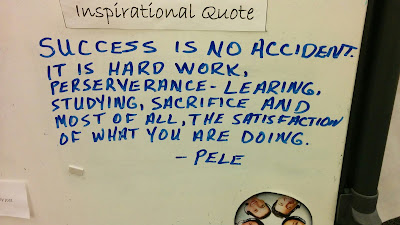 Inspirational Quote
SUCCESS IS NO ACCIDENT.
IT IS HARD WORK,
PERSERVERANCE - LEARING,
STUDYING, SACRIFICE AND
MOST OF ALL, THE SATISFACTION
OF WHAT YOU ARE DOING.
- PELE